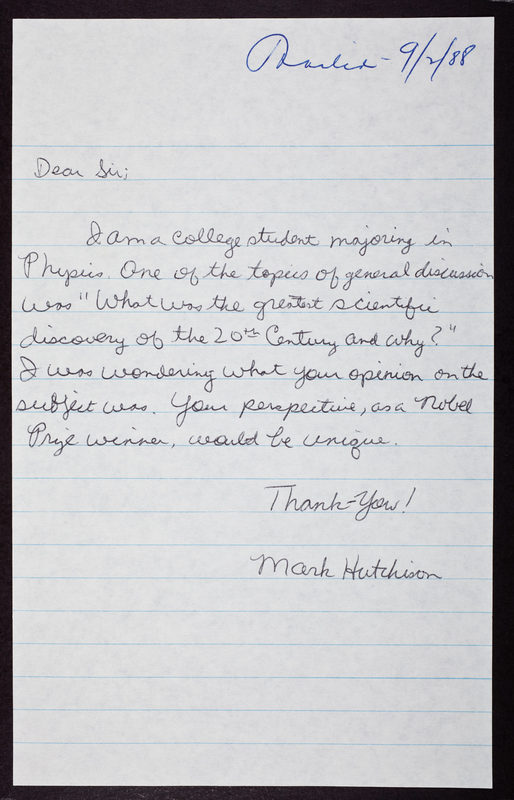 Mailed - 9/2/88
Dear Sir;
I am a college student majoring in
Physics. One of the topics of general discussion
was "What was the greatest scientific
discovery of the 20th Century and why?"
I was wondering what your opinion on the
subject was. Your perspective, as a Nobel
Prize winner, would be unique.
Thank-You!
Mark Hutchison